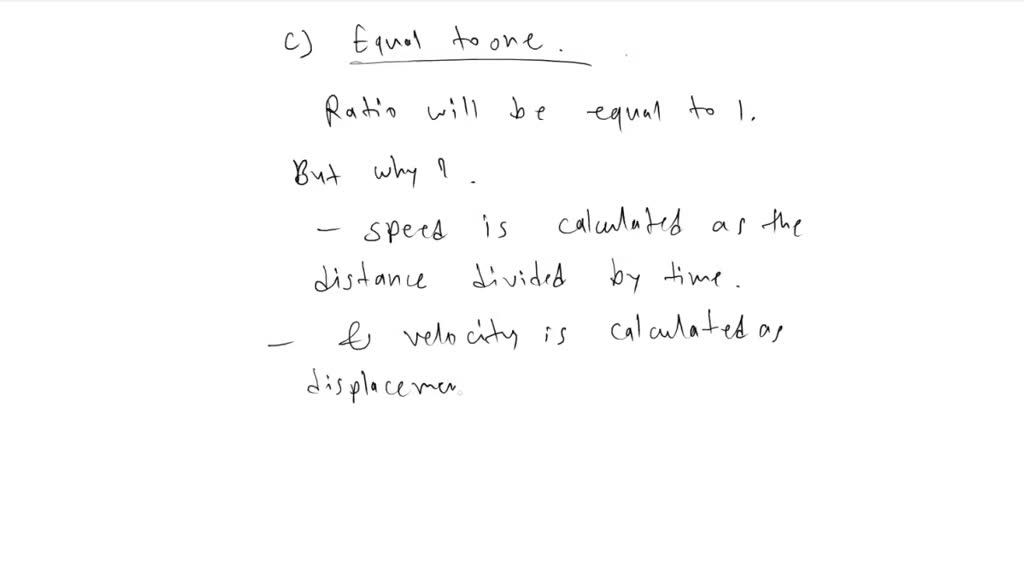 c) Equal to one.
Ratio will be equal to 1.
But why ?.
- speed is calculated as the
distance divided by time.
- & velocity is calculated as
displacemen